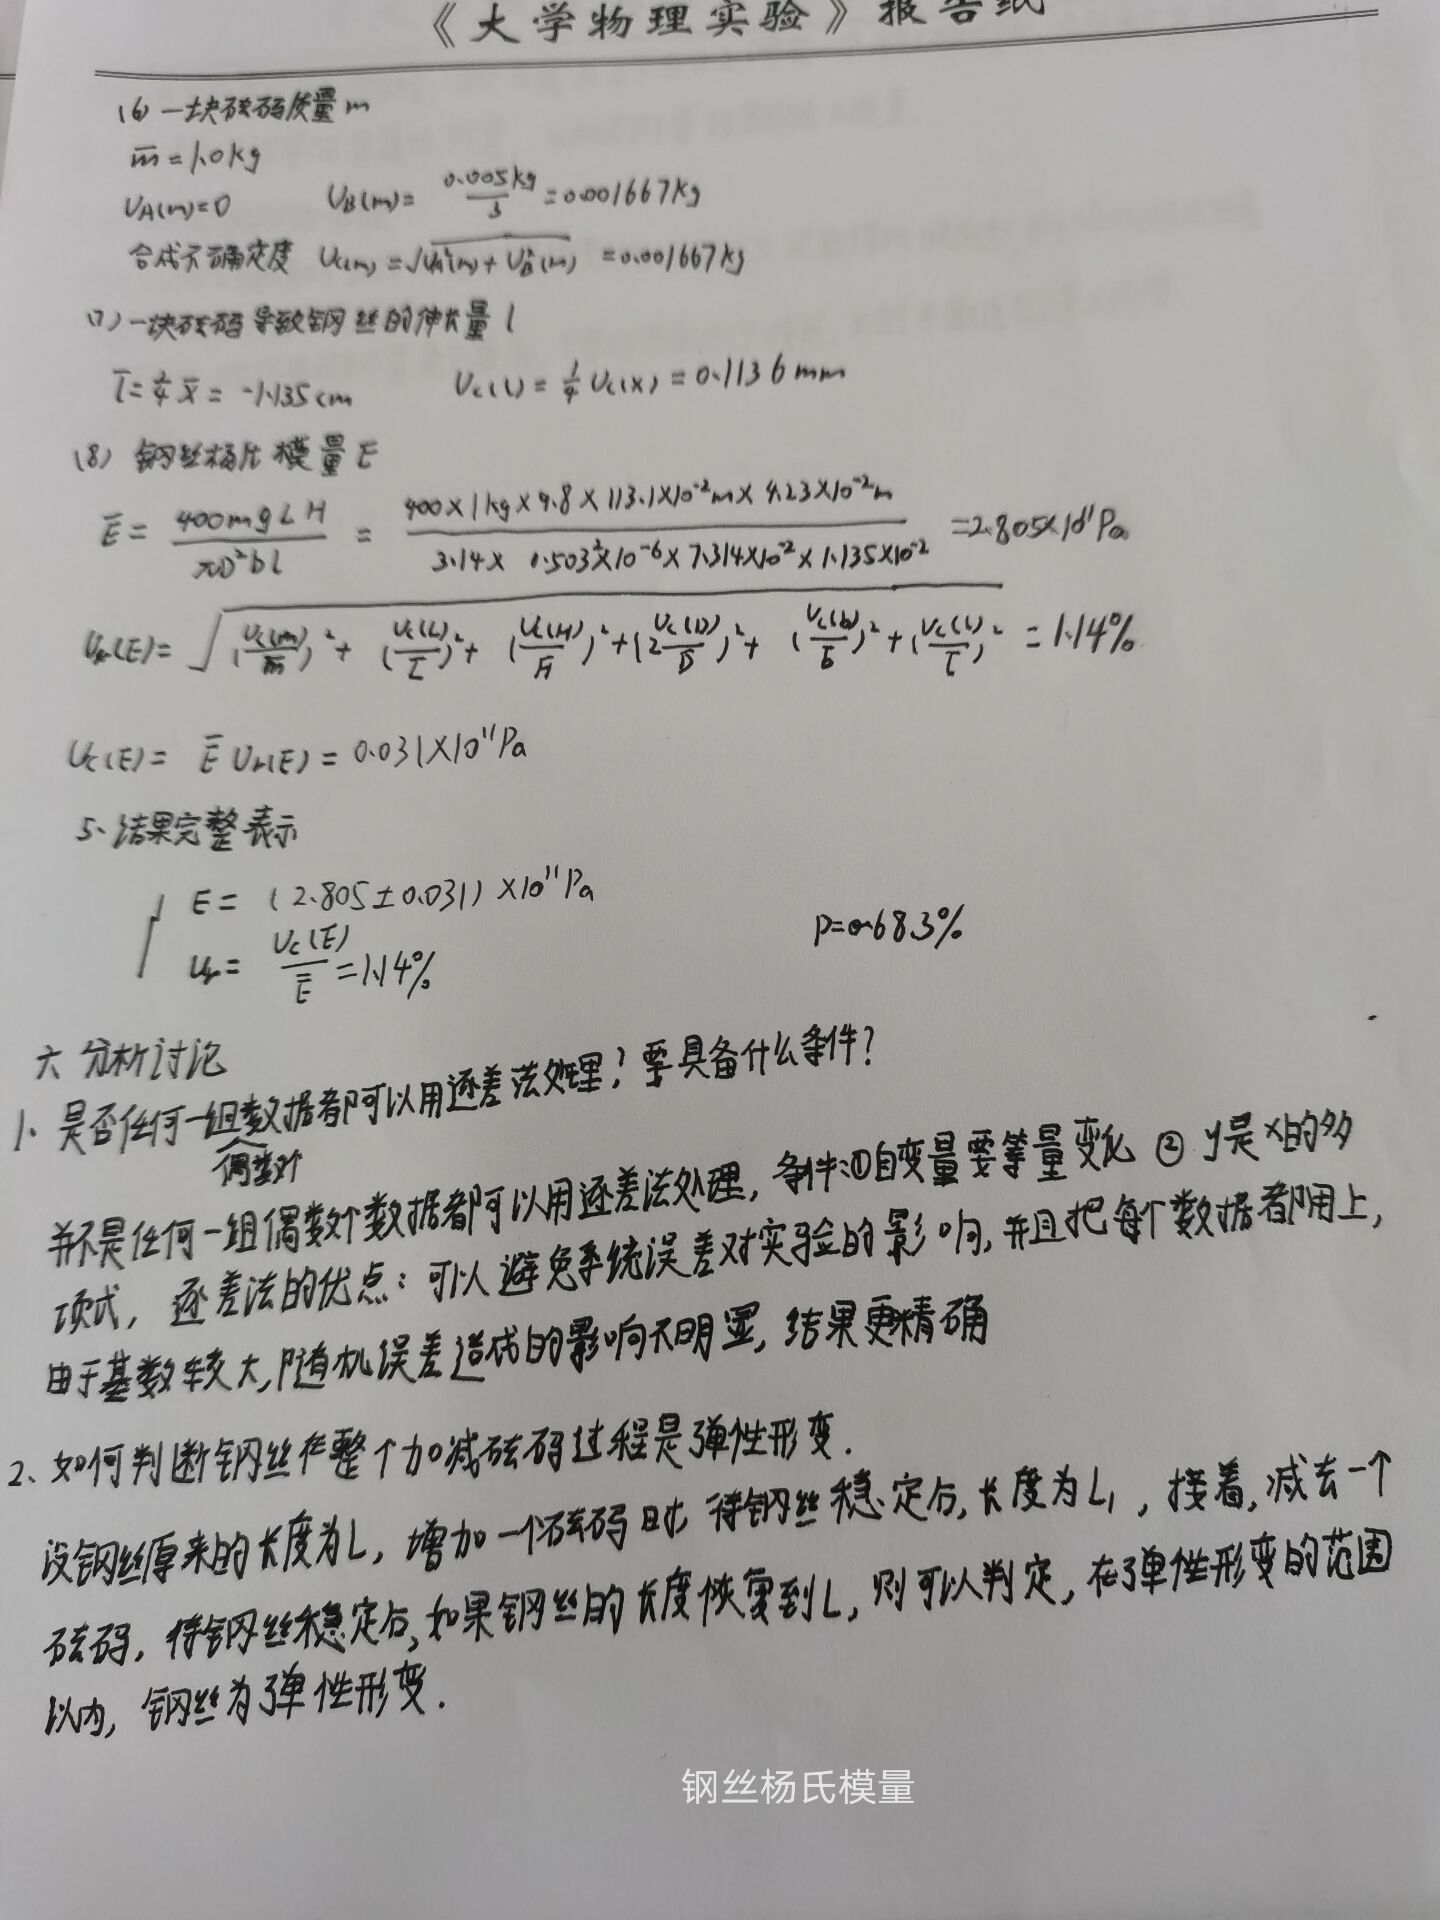 《大学物理实验》报告纸
(6) 一块砝码质量m
m̅=1.0kg
U_A(m)=0 U_B(m)= 0.005kg/3 =0.001667kg
合成不确定度 U_c(m) =√(U_A²(m)+U_B²(m)) =0.001667kg
(7) 一块砝码导致钢丝的伸长量l
l̅=¼x̅= -1.135cm U_c(l)= ¼ U_c(x) = 0.1136mm
(8) 钢丝杨氏模量E
E̅= 400mgLH/πD²bl = 400×1kg×9.8×113.1×10⁻²m×4.23×10⁻²m/3.14×0.503²×10⁻⁶×7.314×10⁻²×1.135×10⁻² =2.805×10¹¹Pa
U_r(E)= √((U_c(m)/m̅)²+(U_c(L)/L̅)²+(U_c(H)/H̅)²+(2U_c(D)/D̅)²+(U_c(b)/b̅)²+(U_c(l)/l̅)²) =1.14%
U_c(E)= E̅ U_r(E)= 0.031×10¹¹Pa
5、结果完整表示
E= (2.805±0.031)×10¹¹Pa
U_r= U_c(E)/E̅ =1.14% P=0.683%
六 分析讨论
1、是否任何一组偶数个数据都可以用逐差法处理?要具备什么条件?
并不是任何一组偶数个数据都可以用逐差法处理,条件:①自变量要等量变化 ②y是x的多
项式,逐差法的优点:可以避免系统误差对实验的影响,并且把每个数据都用上,
由于基数较大,随机误差造成的影响不明显,结果更精确
2、如何判断钢丝在整个加减砝码过程是弹性形变.
设钢丝原来的长度为L,增加一个砝码时,待钢丝稳定后,长度为L₁,接着,减去一个
砝码,待钢丝稳定后,如果钢丝的长度恢复到L,则可以判定,在弹性形变的范围
以内,钢丝为弹性形变.
钢丝杨氏模量